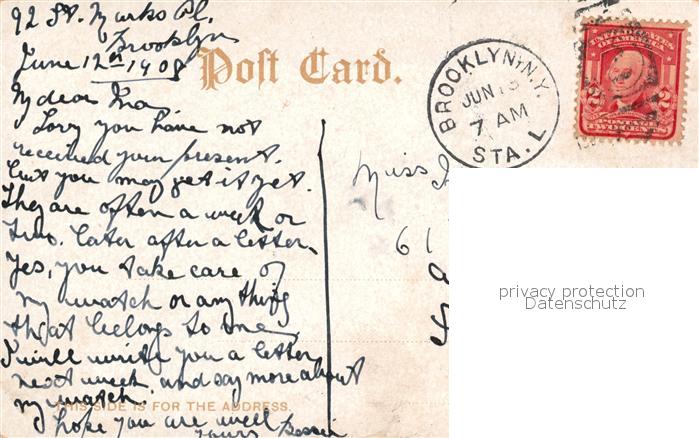 92 St. Marks Pl.
Brooklyn
June 12th 1908
Post Card.
BROOKLYN, N.Y.
JUN 13
7 AM
STA. L
UNITED STATES
OF AMERICA
2 2
POSTAGE
TWO CENTS
My dear Ina
Sorry you have not
received your present.
but you may get it yet.
They are often a week or
two. later after a letter.
Yes, you take care of
my watch or any thing
that belongs to me
I will write you a letter
next week. and say more about
my watch.
THIS SIDE IS FOR THE ADDRESS.
I hope you are well
yours Bessie
Miss
61
privacy protection
Datenschutz